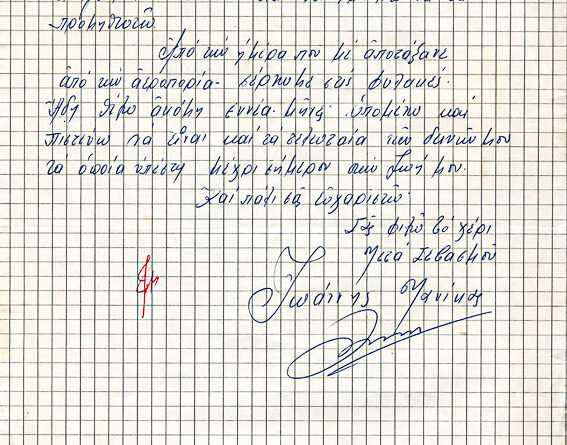 προμηθευτώ.
Από την ημέρα που με αποτάξανε
από την αεροπορία - σέρνομε στις φυλακές.
Ήδη θέμο ακόμη εννέα μήνες υπομένω και
πιστεύω να είναι και τα τελευταία των δεινών μου
τα οποία υπέστη μέχρι σήμερον στη ζωή μου.
Και πάλι σας ευχαριστώ.
Σας φιλώ το χέρι
Μετά Σεβασμού
Ιωάννης Μανίκας